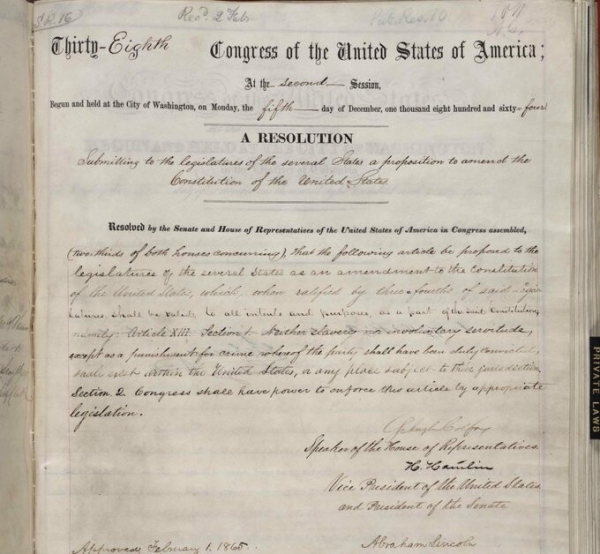 S.R. 16
Recd. 2 Feb
Pub. Res. 10
Thirty-Eighth Congress of the United States of America;
At the second Session,
Begun and held at the City of Washington, on Monday, the fifth day of December, one thousand eight hundred and sixty-four
A RESOLUTION
Submitting to the legislatures of the several States a proposition to amend the
Constitution of the United States
Resolved by the Senate and House of Representatives of the United States of America in Congress assembled,
(two thirds of both houses concurring), that the following article be proposed to the
legislatures of the several States as an amendment to the Constitution
of the United States, which, when ratified by three-fourths of said Legis-
latures, shall be valid, to all intents and purposes, as a part of the said Constitution,
namely: Article XIII. Section 1. Neither slavery nor involuntary servitude,
except as a punishment for crime whereof the party shall have been duly convicted,
shall exist within the United States, or any place subject to their jurisdiction.
Section 2. Congress shall have power to enforce this article by appropriate
legislation.
Schuyler Colfax
Speaker of the House of Representatives
H. Hamlin
Vice President of the United States
and President of the Senate
Approved February 1. 1865.
Abraham Lincoln
PRIVATE LAWS